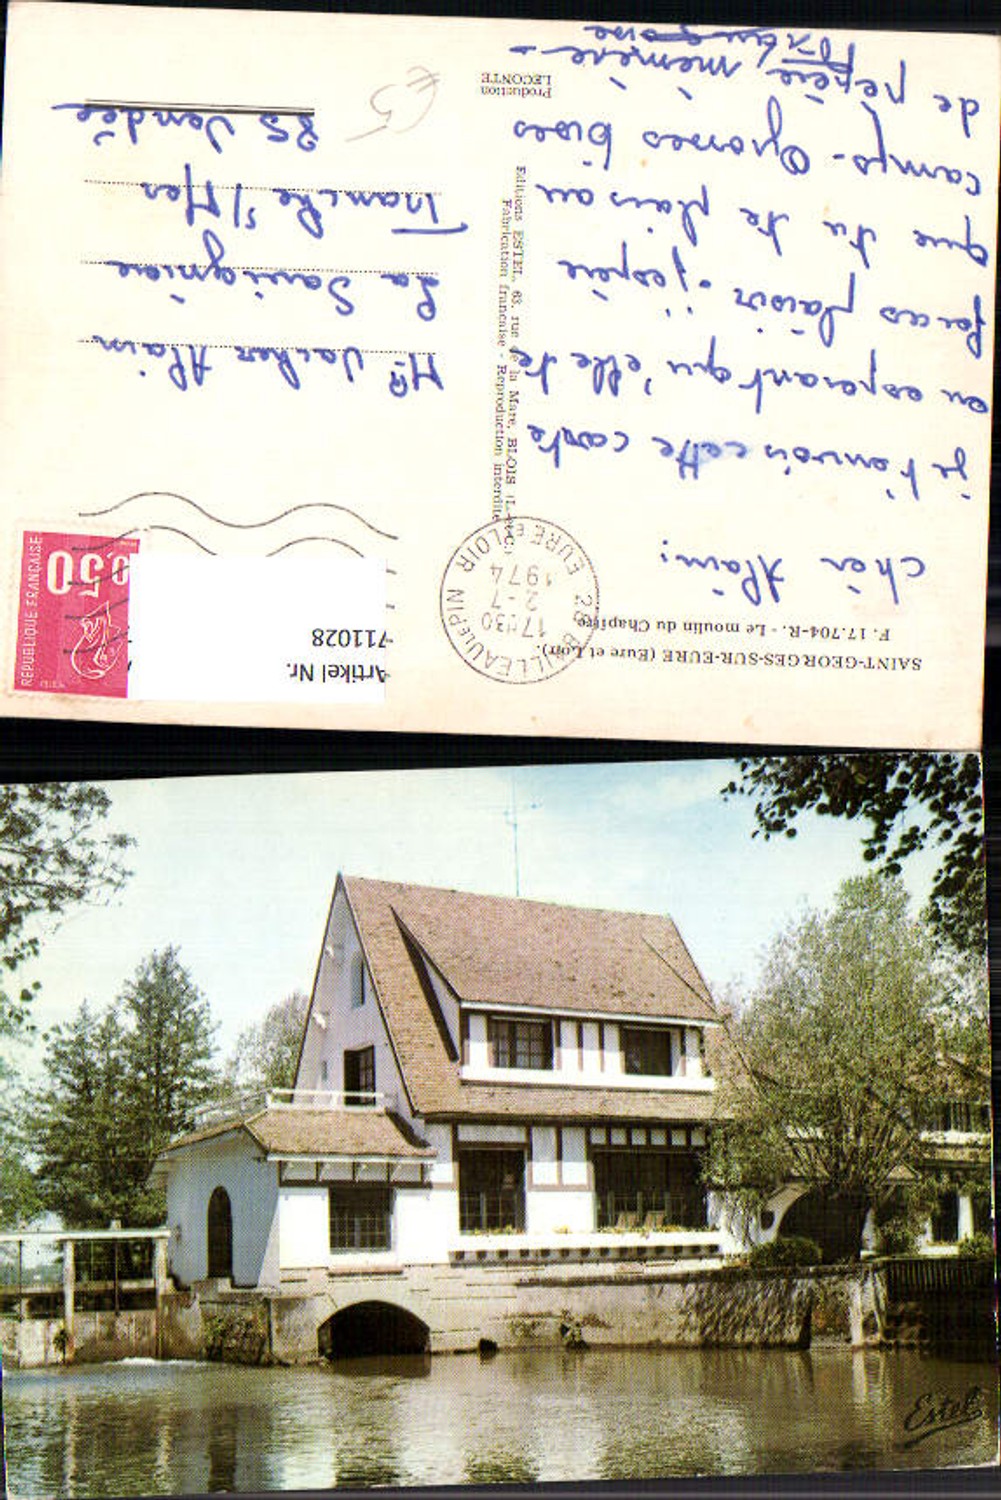 SAINT-GEORGES-SUR-EURE (Eure et Loir).
F. 17.704-R. - Le moulin du Chapitre
cher Alain;
je t'envois cette carte
en esperant qu'elle te
feras plaisir - j'espère
que tu te plais au
camp - Grosses bises
de pépère, mémère -
Françoise
28 BAILLEAU LE PIN
17H30
2-7
1974
EURE ET LOIR
Editions ESTEL, 63, rue de la Mare, BLOIS
Fabrication française - Reproduction interdite
Production
LECONTE
RÉPUBLIQUE FRANÇAISE
0,50
Artikel Nr.
711028
Mr Vacher Alain
La Sauzinière
Tranche s/Mer
85 Vendée
5 €
Estel